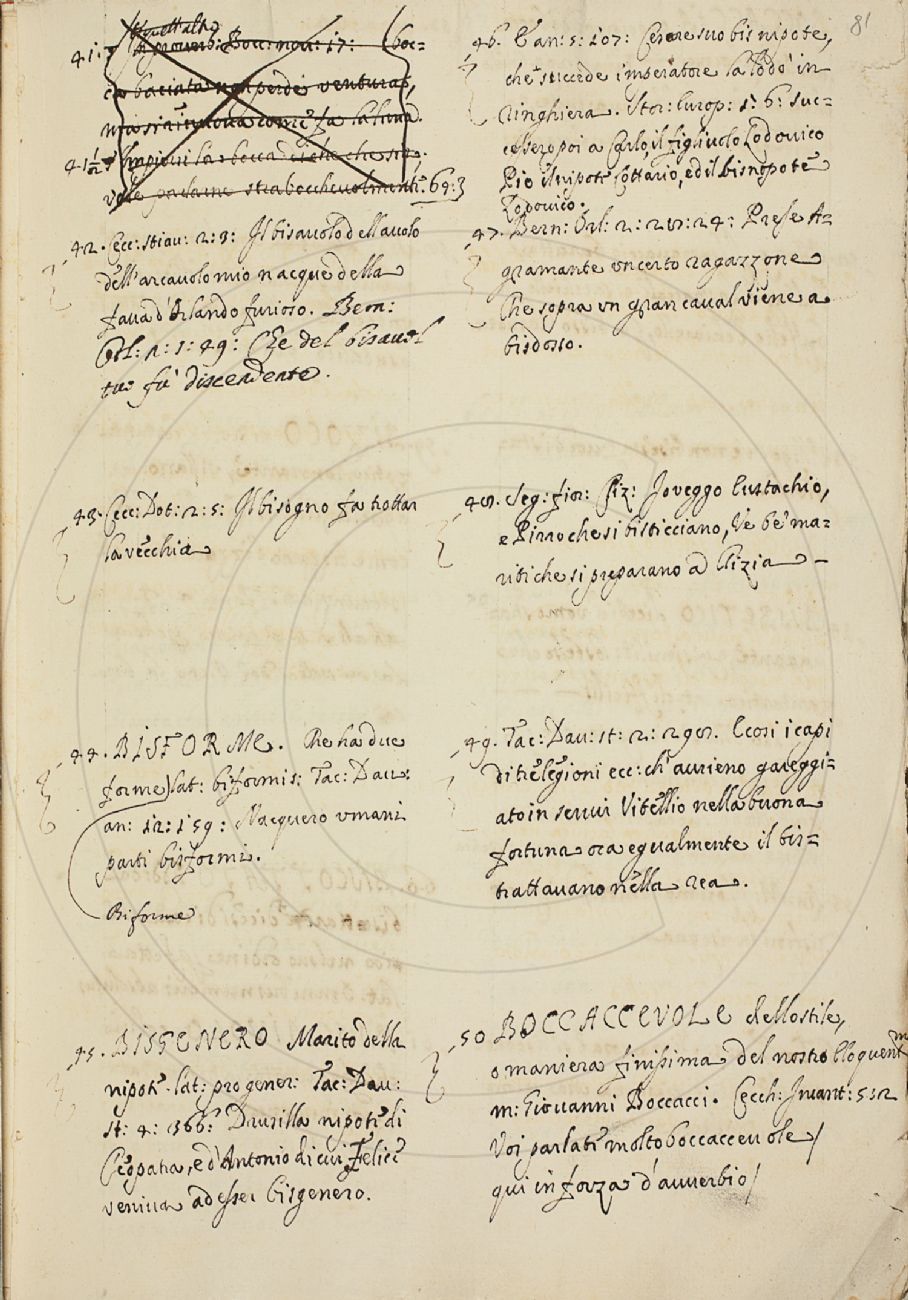 81
41. In proverb: Boc: nov: 17: (boc-
ca baciata non perde ventura,
ma si rinnova come fa la luna.
41½
vole parlame strabocchevolmente. 69:3
42. Cec: stiau: 2: 3: Il bisavolo dell avolo
dell'arcavolo mio nacque della
fava d'Orlando furioso. Bern:
Orl: 1: 5: 49: Che del bisavol
tuo fu' discendente.
43. Cecc: Dot: 2: 5: Il bisogno fa trottar
la vecchia
44. BISFORME. Che ha due
forme) lat: biformis: Tac: Dav:
an: 12: 159: Nacquero umani
parti bisformi.
Biforme
45. BISGENERO Marito della
nipote. lat: progener: Tac: Dav:
st: 4: 366: Drusilla nipote di
Cleopatra, e d'Antonio di cui Felice
veniva ad esser bisgenero.
46. an: 5: 107: Cesare suo bisnipote,
che succede imperatore la lodò in
ringhiera. Stor: Europ: 1: 6: Suc-
cessero poi a Carlo, il figliuolo Lodovico
Pio il nipote Lottario, ed il bisnipote
Lodovico.
47. Bern: Orl: 2: 24: Prese A-
gramante un certo ragazzone
Che sopra un gran caval viene a
bisdosso.
48. Seg: fior: Cliz: Io veggo Eustachio,
e Pirro che si bisticciano, Ve be' ma-
riti che si preparano a Clizia –
49. Tac: Dav: st: 2: 298. E così i capi
di tre legioni ecc: ch'avrieno gareggi-
ato in servir Vitellio nella buona
fortuna ora egualmente il bis-
trattavano nella rea.
50 BOCCACCEVOLE dello stile,
o maniera finissima del nostro Eloquentm
m: Giovanni Boccacci. Cecch: Incant: 5:2
Voi parlate molto boccaccevole /
qui in forza d'avverbio /